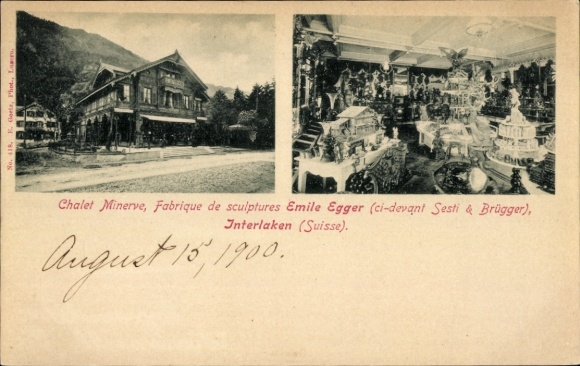 No. 419. E. Goetz, Phot., Luzern.
Chalet Minerve, Fabrique de sculptures Emile Egger (ci-devant Sesti & Brügger),
Interlaken (Suisse).
August 15, 1900.